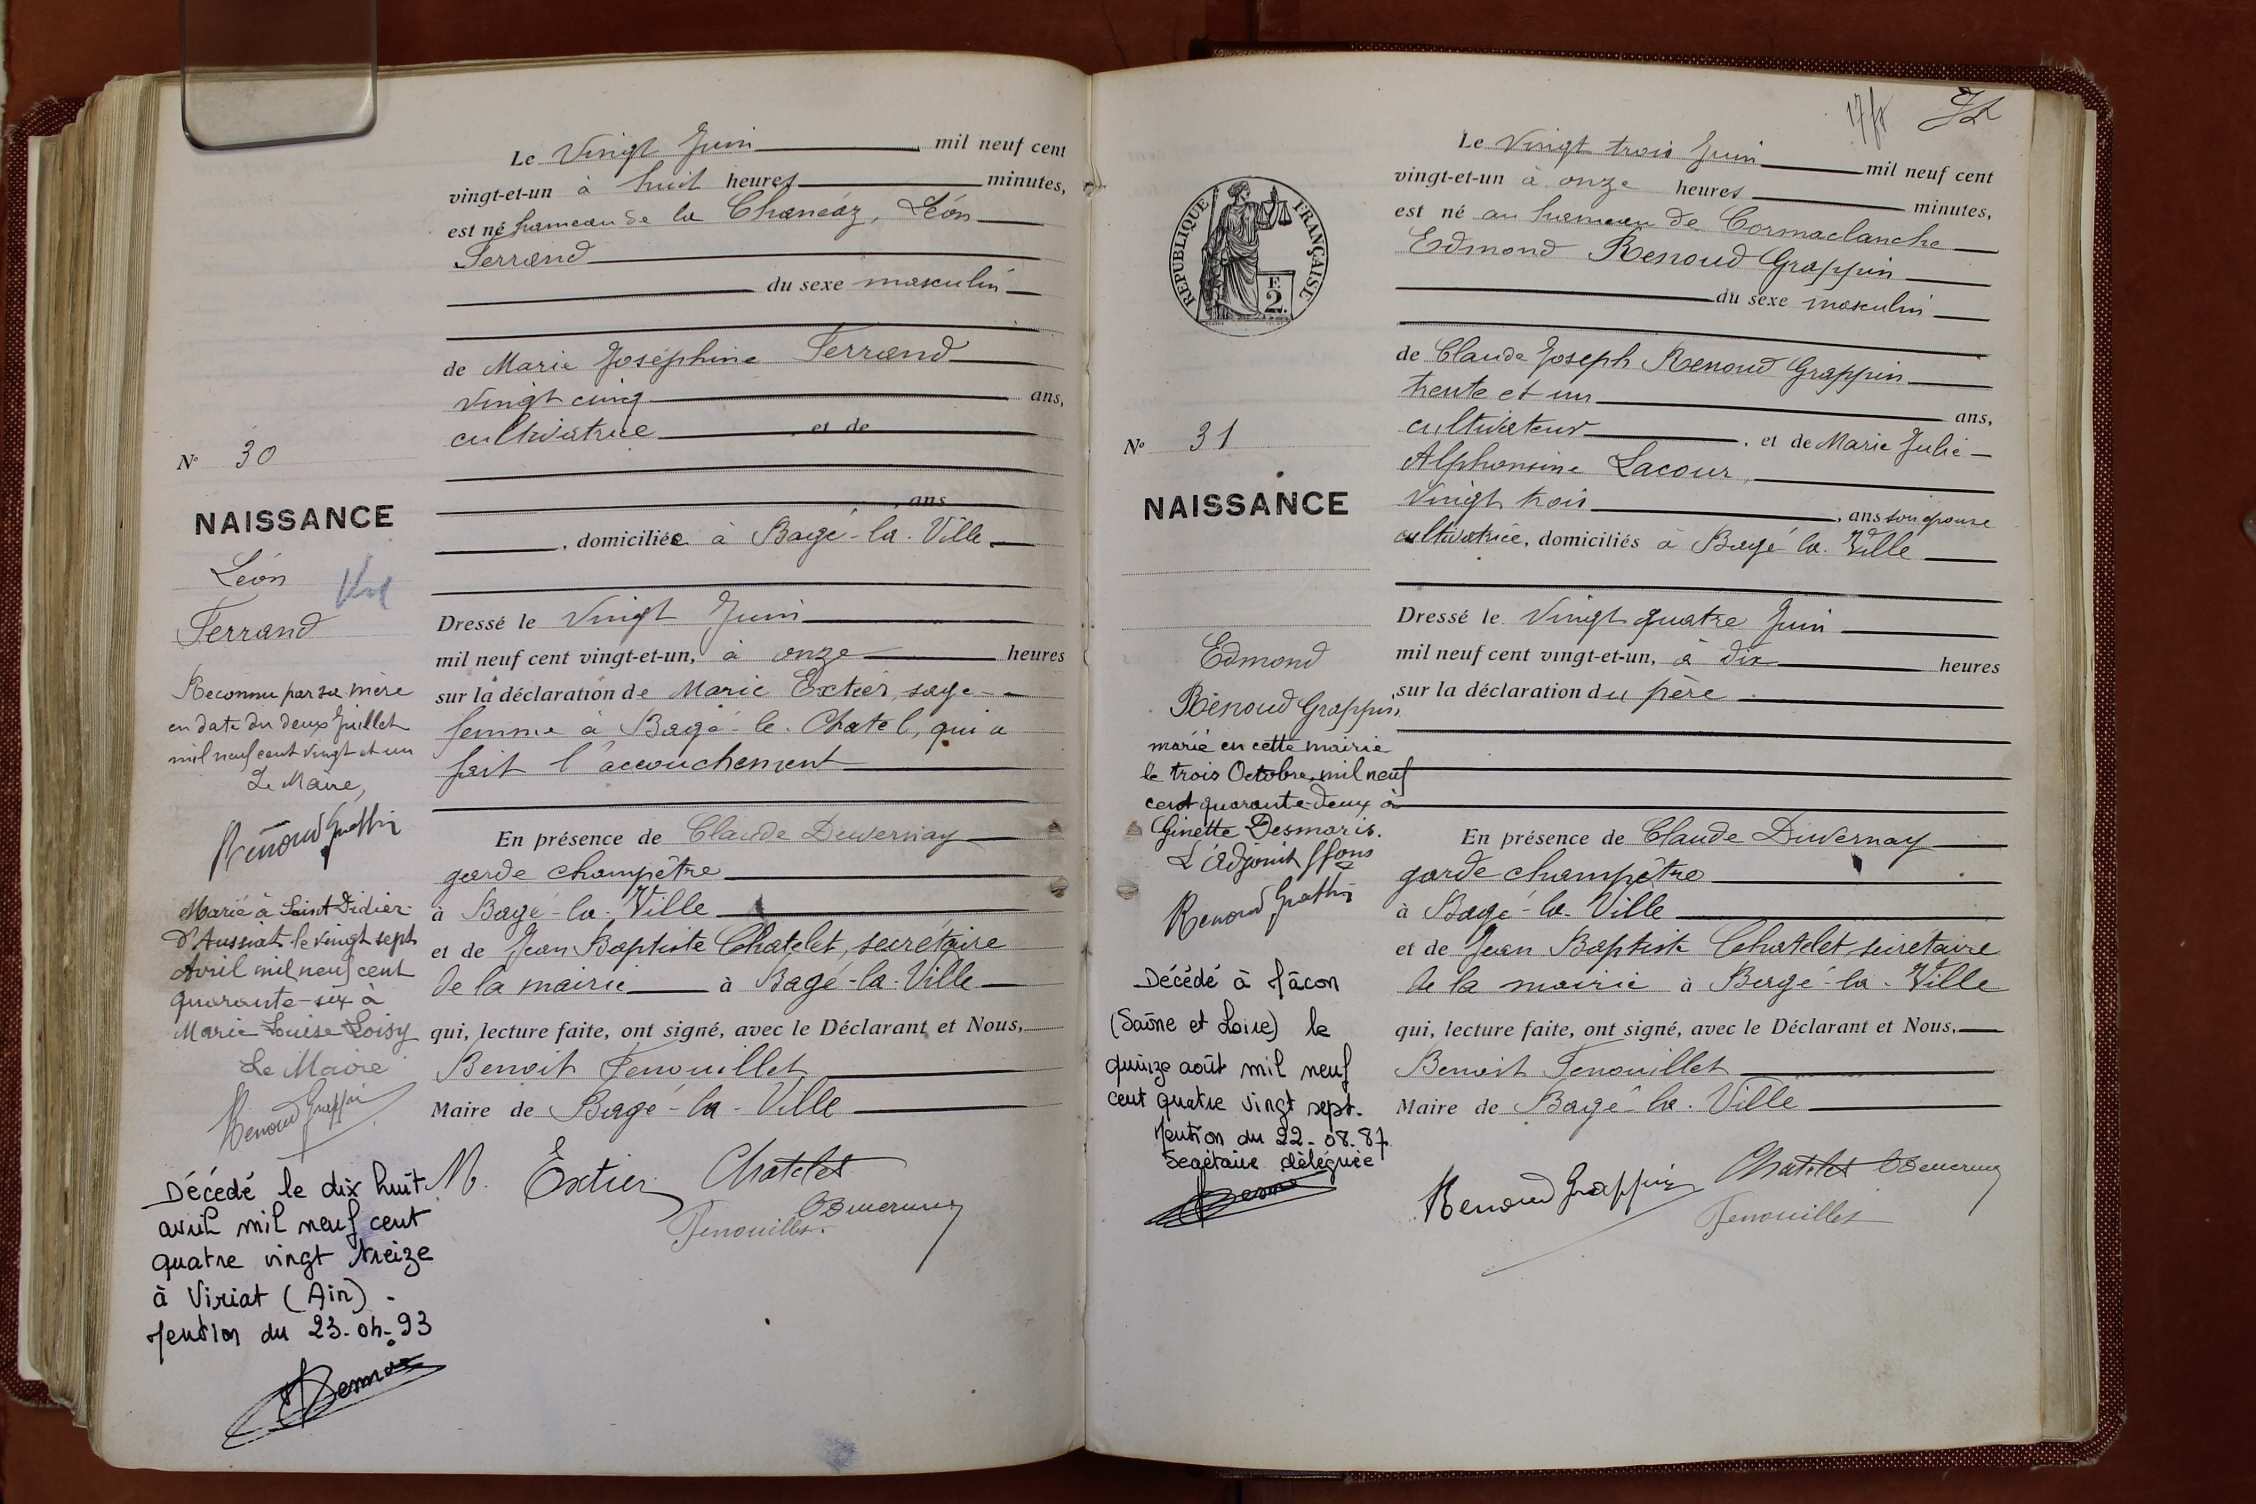 Le Vingt Juin mil neuf cent
vingt-et-un à huit heures minutes,
est né hameau de la Chanéaz, Léon
Ferrand
du sexe masculin
de Marie Joséphine Ferrand
vingt cinq ans,
cultivatrice et de
ans
, domiciliée à Bagé-la-Ville
Nº 30
NAISSANCE
Léon
Ferrand
Reconnu par sa mère
en date du deux Juillet
mil neuf cent vingt et un
Le Maire,
Renoud Grappin
Marié à Saint Didier
d'Aussiat le vingt sept
Avril mil neuf cent
quarante-six à
Marie Louise Loisy
Le Maire
Renoud Grappin
Décédé le dix huit
avril mil neuf cent
quatre vingt treize
à Viriat (Ain) -
Mention du 23-04-93
Dressé le Vingt Juin
mil neuf cent vingt-et-un, à onze heures
sur la déclaration de Marie Extier, sage-
femme à Bagé-le-Chatel, qui a
fait l'accouchement
En présence de Claude Duvernay
garde champêtre
à Bagé-la-Ville
et de Jean Baptiste Chatelet, secrétaire
de la mairie à Bagé-la-Ville
qui, lecture faite, ont signé, avec le Déclarant et Nous,
Benoit Fenouillet
Maire de Bagé-la-Ville
M. Extier Chatelet
Duvernay
Fenouillet
Le Vingt trois Juin mil neuf cent
vingt-et-un à onze heures minutes,
est né au hameau de Cormaclanche
Edmond Renoud Grappin
du sexe masculin
de Claude Joseph Renoud Grappin
trente et un ans,
cultivateur , et de Marie Julie
Alphonsine Lacour,
vingt trois , ans son épouse
cultivatrice, domiciliés à Bagé la Ville
RÉPUBLIQUE FRANÇAISE
F.
2.
Nº 31
NAISSANCE
Edmond
Renoud Grappin,
marié en cette mairie
le trois Octobre mil neuf
cent quarante-deux à
Ginette Desmaris.
L'Adjoint ffons
Renoud Grappin
Décédé à Mâcon
(Saône et Loire) le
quinze août mil neuf
cent quatre vingt sept.
Mention du 22-08-87
Secrétaire déléguée
Dressé le Vingt quatre Juin
mil neuf cent vingt-et-un, à dix heures
sur la déclaration du père
En présence de Claude Duvernay
garde champêtre
à Bagé-la-Ville
et de Jean Baptiste Chatelet, secrétaire
de la mairie à Bagé-la-Ville
qui, lecture faite, ont signé, avec le Déclarant et Nous,
Benoit Fenouillet
Maire de Bagé la Ville
Renoud Grappin Chatelet Duvernay
Fenouillet